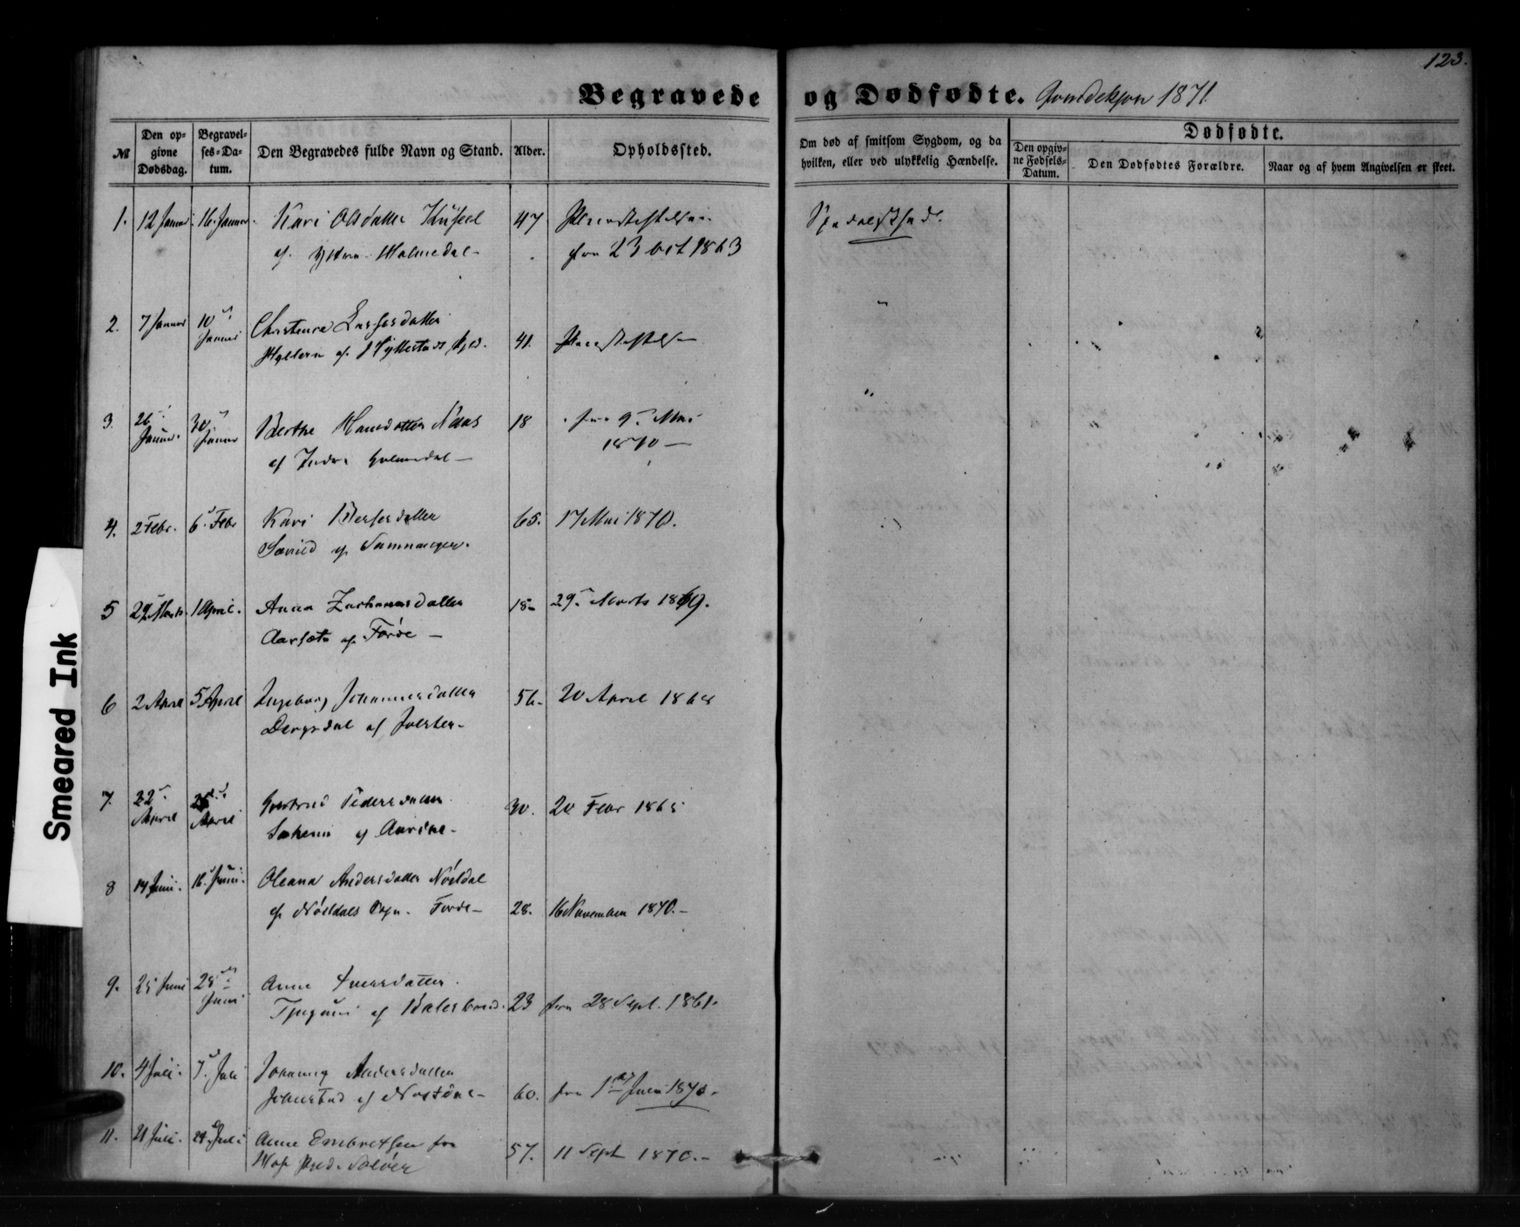 123.
Begravede og Dødfødte. Qvindekjøn 1871
№
Den op-
givne
Dødsdag.
Begravel-
ses-Da-
tum.
Den Begravedes fulde Navn og Stand.
Alder.
Opholdssted.
Om død af smitsom Sygdom, og da
hvilken, eller ved ulykkelig Hændelse.
Dødfødte.
Den opgiv-
ne Fødsels-
Datum.
Den Dødfødtes Forældre.
Naar og af hvem Angivelsen er skeet.
1. 12 Januar. 16. Januar. Kari Olsdatter 47 Pleiestiftelsen Spedalskhed.
af Ytre Holmedal - fra 23 Oct 1863
2. 7 Januar 10 Januar Christence Lassesdatter
af 41. Pleiestiftelsen
3. 26 Januar. 30 Januar Berthe Hansdatter Næs 18 fra 9 Mai
af Indre Holmedal - 1870 -
4. 2 Febr. 6. Febr Kari 65. 17 Mai 1870.
Sævild af Samnanger.
5 29 Marts 1 April. Anna Zachariasdatter 18 29 Marts 1869.
Aarsæt af Førde -
6 2 April 5 April Ingeborg Johannesdatter 56. 20 April 1868
af Jølster -
7. 22 April 25 April Gertrud Pedersdatter 30. 20 Febr 1865
af
8 14 Juni. 18. Juni. Oleana Andersdatter Nøsldal
af Førde - 28. 16 November 1870. -
9. 25 Juni 28 Juni Anne Iversdatter
Tjugum af Balestrand. 23 fra 28 Sept. 1861.
10. 4 Juli. 7. Juli Johanne Andersdatter
af 60. fra 1 Juni 1870.
11. 21 Juli. 24. Juli Anne Embretsen fra
Hof Præd. Soløer 57. 11 Sept 1870. -
Smeared Ink